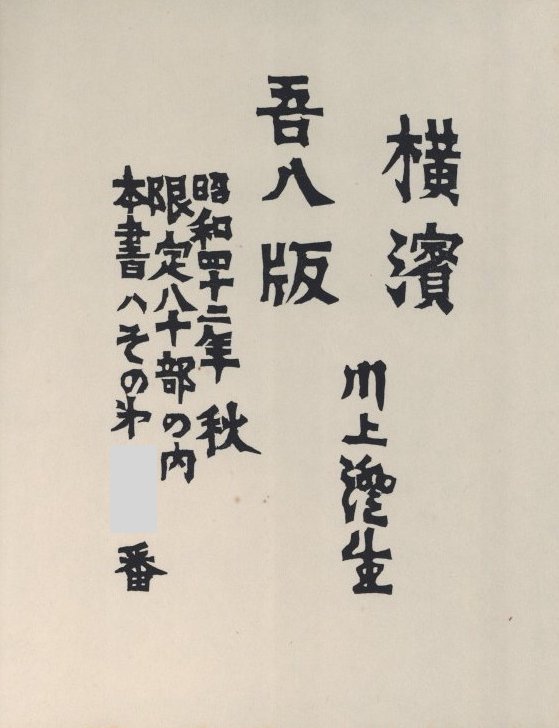 横濱
川上澄生
吾八版
昭和四十二年 秋
限定八十部の内
本書ハその㐧
番